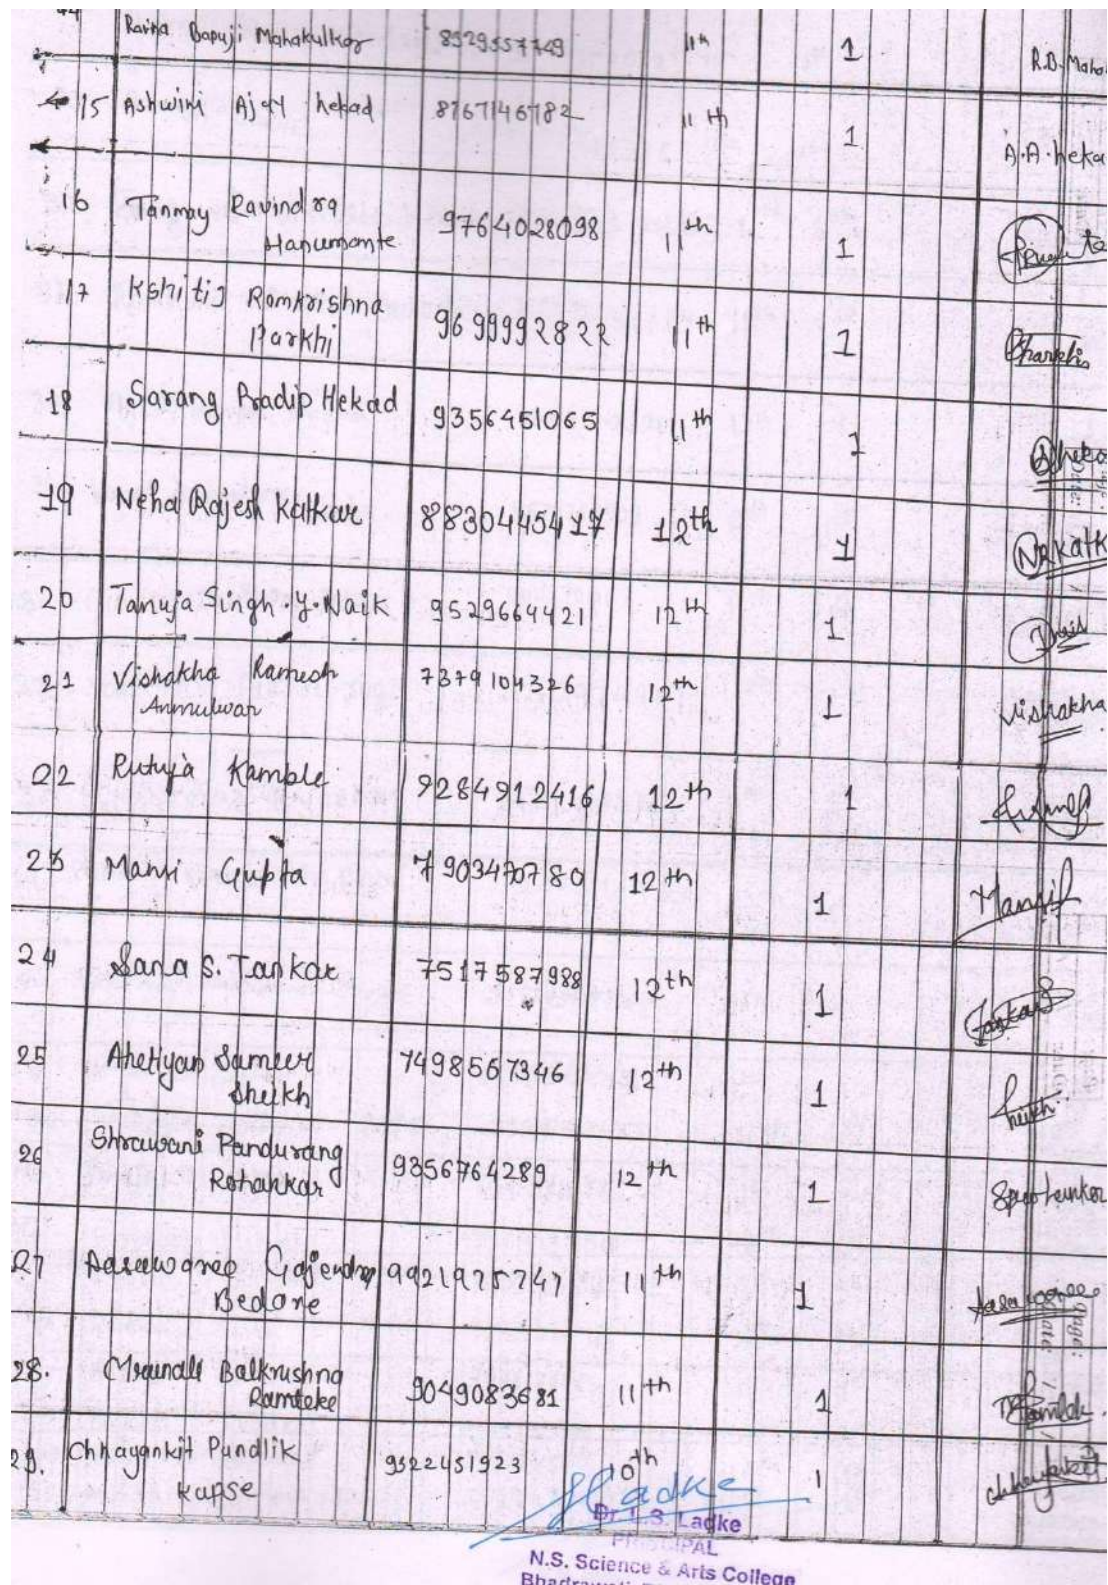 Ravina Bapuji Mahakulkar 8329557749 11th 1 R.B. Mahak
15 Ashwini Ajay hekad 8767146782 11th 1 A.A. heka
16 Tanmay Ravindra 9764028098 11th 1
Hanumante
17 Kshitij Ramkrishna 9699992822 11th 1 Pharkhi
Parkhi
18 Sarang Pradip Hekad 9356451065 11th 1
19 Neha Rajesh Katkar 8830445417 12th 1 NRKatk
20 Tanuja Singh .Y. Naik 9529664421 12th 1
21 Vishakha Ramesh 7379104326 12th 1 Vishakha
Anmulwar
22 Rutuja Kamble 9284912416 12th 1
23 Mansi Gupta 7903470780 12th 1 Mansi
24 Sana S. Tankar 7517587988 12th 1 Tankar
25 Sameer 7498567346 12th 1
Sheikh
26 Shrawani Pandurang 9356764289 12th 1
Rohankar
27 Aasawaree Gajendra 9921975747 11th 1 Aasawaree
Bedare
28. Mrunali Balkrushna 9049083681 11th 1
Ramteke
29. Chhayankit Pundlik 9322451923 10th 1
Kapse
Ladke
Dr. L.S. Ladke
PRINCIPAL
N.S. Science & Arts College